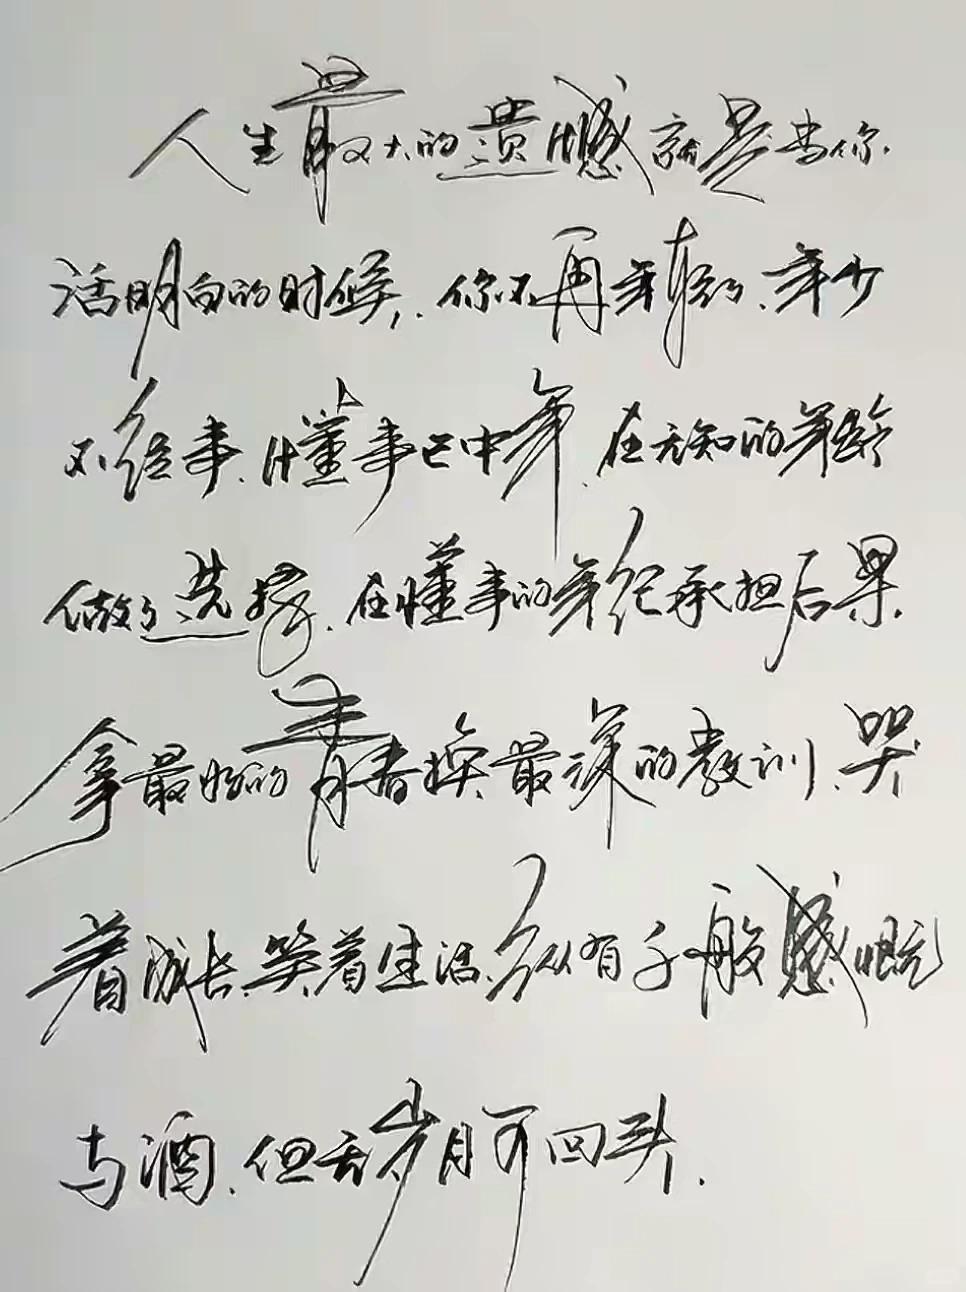 人生最大的遗憾就是当你
活明白的时候，你不再年轻、年少
不经事、懂事已中年、在无知的年龄
做了选择、在懂事的年纪承担后果、
拿最好的青春换最深的教训、哭
着成长、笑着生活、纵有千般感慨
与酒、但无岁月可回头.